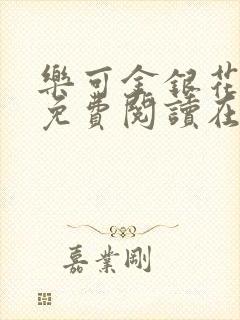 樂可金銀花
免費閱讀在
嘉業剛